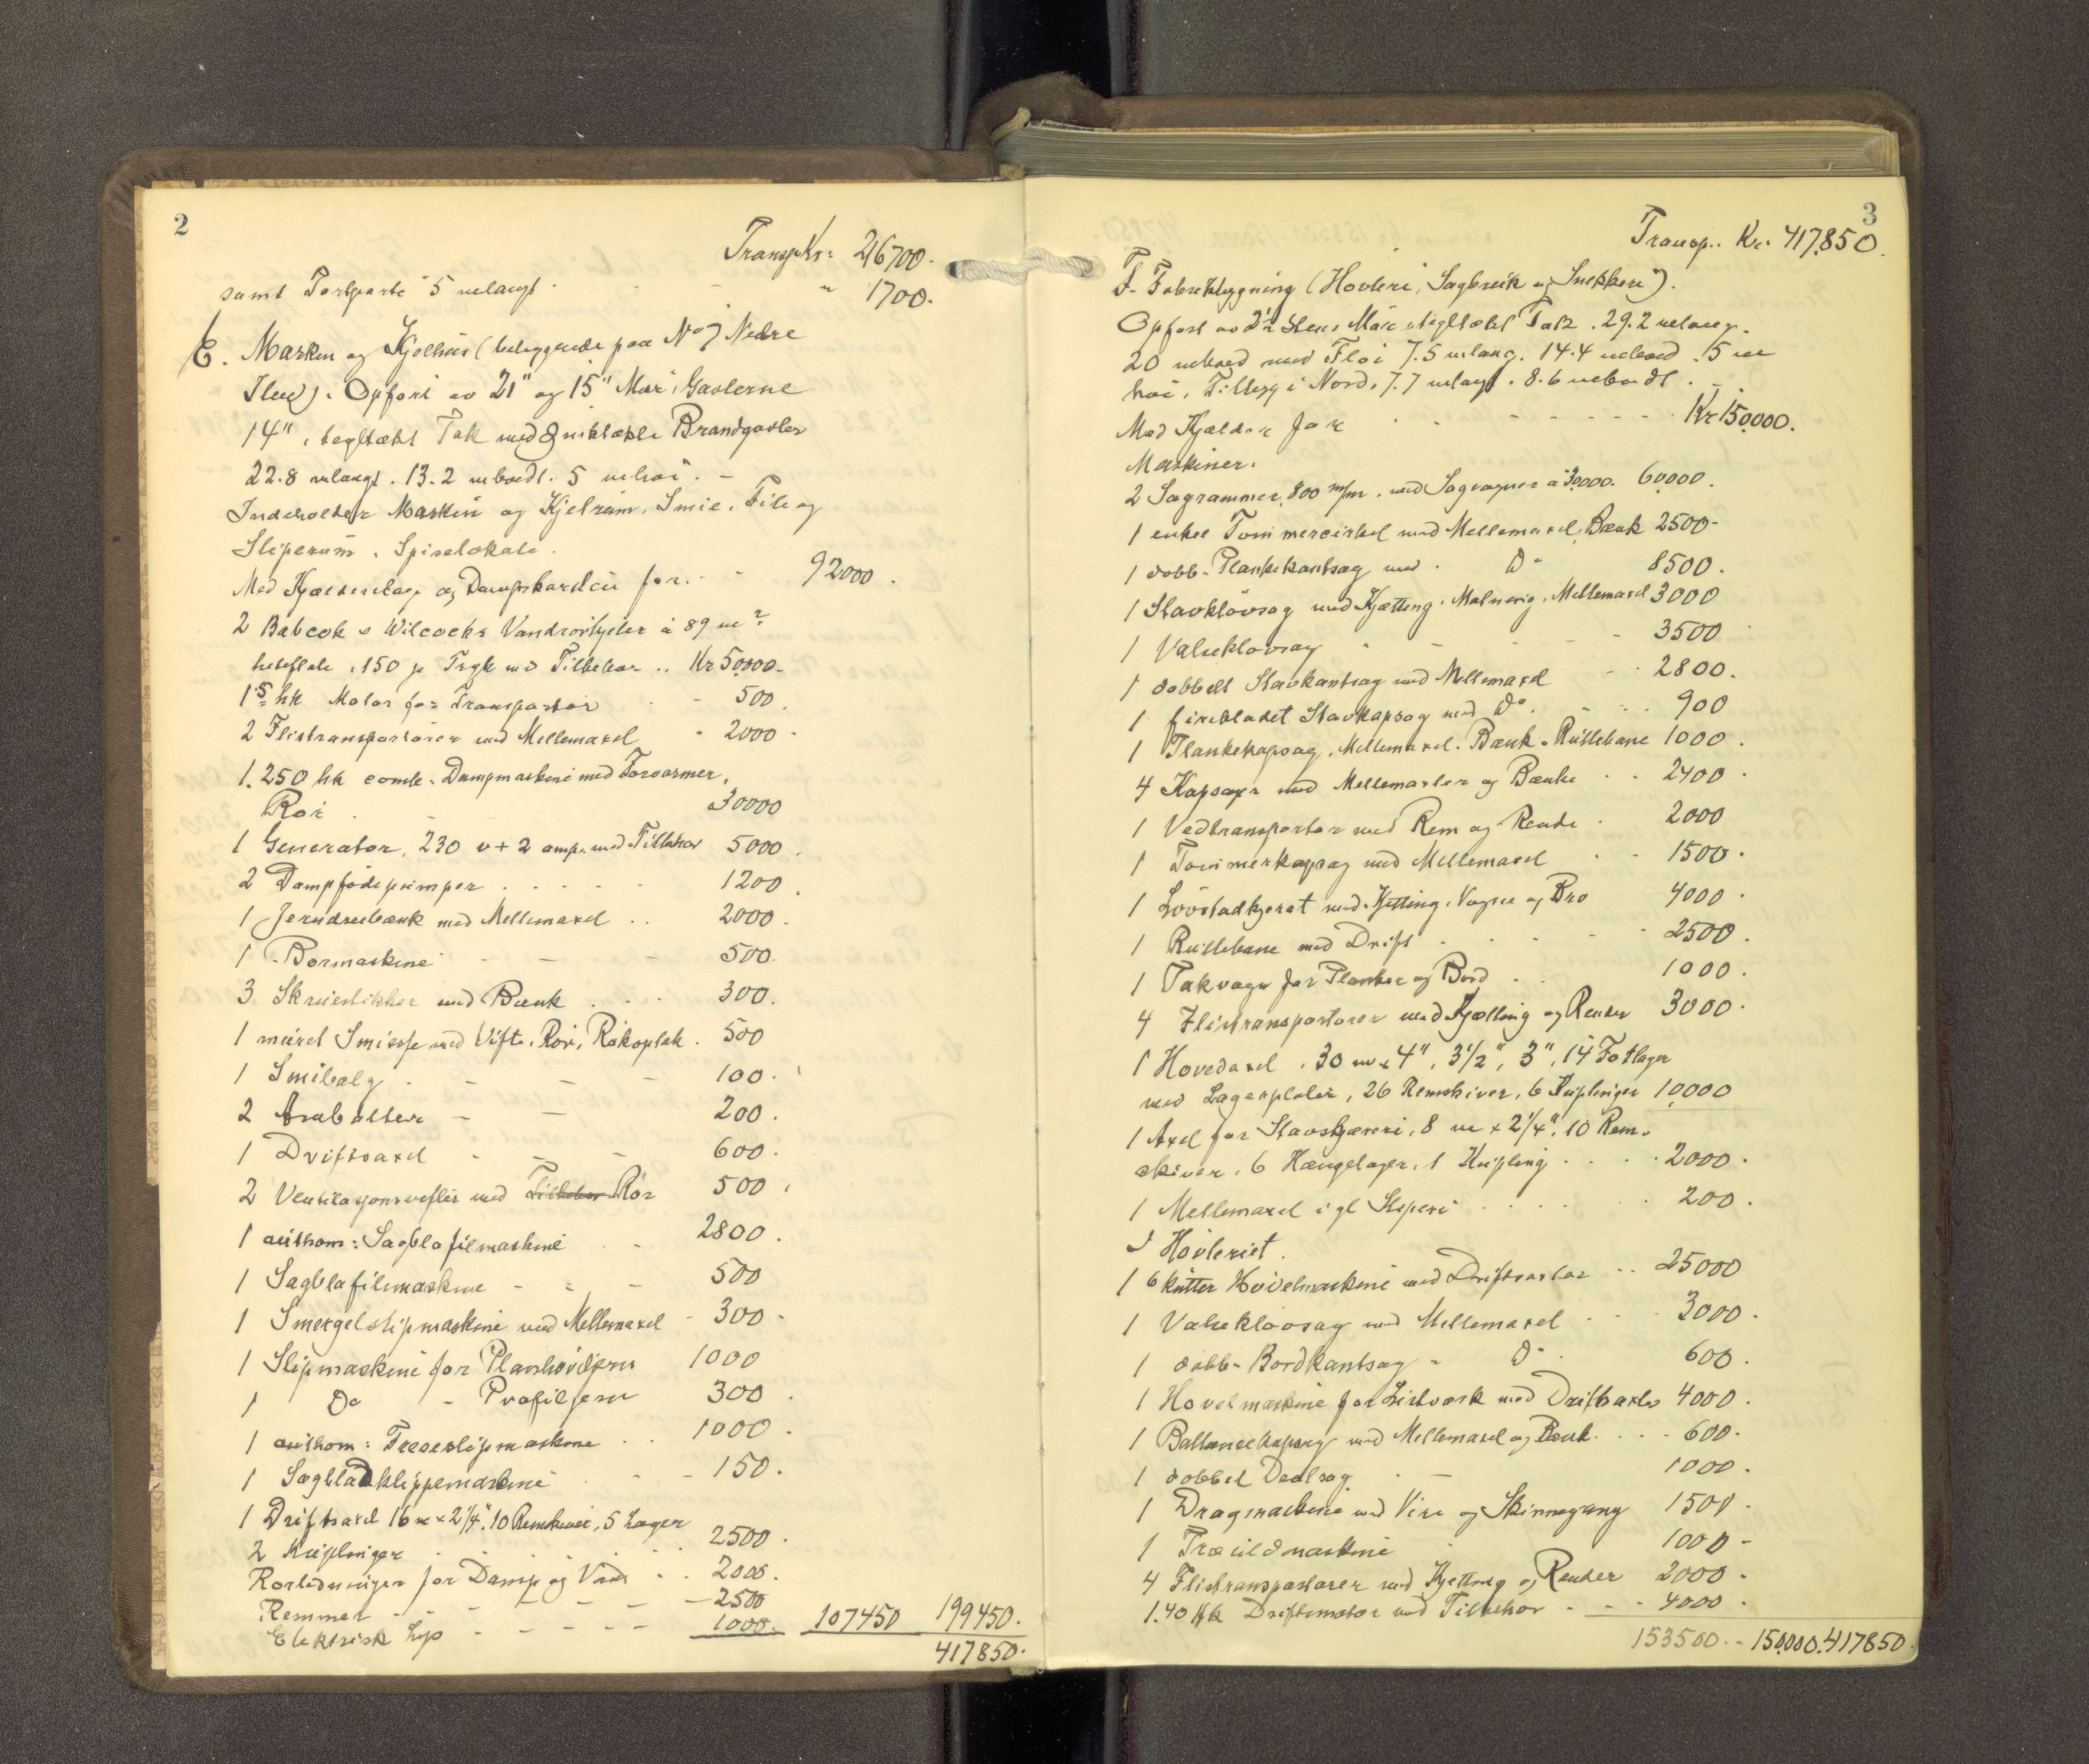 2
Transp. Kr. 216700.
samt Portparti 5 m langt - " 1700.
E. Maskin og Kjelhus (beliggende paa No 7 Nedre
Ilen). Opført av 21" og 15" Mur, Gavlerne
14", tegltækt Tak med Brandgavler
22.8 m langt. 13.2 m bredt. 5 m høi. -
Indeholder Maskin og Kjelrum, Smie, File og
Sliperum, Spiselokale.
Med Kjælderetage og Dampskorsten for. - - 92000.
2 Babcok & Wilcocks Vandrørkjeler à 89 m²
heteflate, 150 p Tryk med Tilbehør .. Kr 50,000.-
1 5 hk Motor for Transportør - - 500.
2 Flistransportører med Mellemaxel - 2000 -
1. 250 hk comb. Dampmaskine med Forvarmer,
Rør . - - 30000
1 Generator, 230 v + 2 amp. med Tilbehør 5000.
2 Dampfødepumper . . . . . 1200.
1 Jerndreiebænk med Mellemaxel . . 2000.
1 Bormaskine - - - 500.
3 Skruestikker med Bænk . . . 300.
1 muret Smiesse med Vifte, Rør, Røkoptak . 500
1 Smibelg . - - - 100.
2 Ambolter - - 200.
1 Driftsaxel - - - 600.
2 Ventilasjonsvifter med Tilbehør Rør 500.
1 authom: Sagbladfilmaskine . - 2800.
1 Sagbladfilemaskine - - - 500
1 Smergelslipmaskine med Mellemaxel - 300 -
1 Slipmaskine for Planhøvljern 1000
1 Do - Profiljern 300.
1 authom: Fræseslipmaskine . . 1000.
1 Sagbladklippemaskine . - - 150.
1 Driftsaxel 16 m x 2 1/4", 10 Remskiver, 5 Lager
2 Kuplinger . - . . . 2500.
Rørledninger for Damp og Vand . . 2000.
Remmer - - - - - - 2500
Elektrisk Lys - - - - - 1000. 107450 199450.
417850.
3
Transp.. Kr. 417,850.
F. Fabrikbygning (Høvleri, Sagbruk og Snekkeri).
Opført av 2 1/2 Stens Mur, tegltækt Tak. 29.2 m lang.
20 m bred med Fløi 7.5 m lang. 14.4 m bred. 5 m
høi, Tilbygg i Nord, 7.7 m langt. 8.6 m bredt.
Med Kjælder for - - - - - - Kr 150,000.
Maskiner.
2 Sagrammer, 800 m/m, med Sagvogner à 30,000. 60,000.
1 enkel Tømmercirkel med Mellemaxel, Bænk 2500-
1 dobb. Plankekantsag med . Do 8500.
1 Stavkløvsag med Kjætting, Matning, Mellemaxel 3000
1 Valsekløvsag - - - - 3500
1 dobbelt Stavkantsag med Mellemaxel - . 2800.
1 firebladet Stavkapsag med Do. - . . 900
1 Plankekapsag, Mellemaxel. Bænk. Rullebane 1000.
4 Kapsager med Mellemaxler og Bænke . . 2400.
1 Vedtransportør med Rem og Rende . 2000
1 Tømmerkapsag med Mellemaxel . . 1500.
1 Løvstadkjerat med Kjetting, Vogne og Bro 4000.
1 Rullebane med Drift . . . - - 2500.
1 Takvogn for Planker og Bord . . 1000.
4 Flistransportører med Kjætting og Render 3000.
1 Hovedaxel, 30 m x 4", 3 1/2", 3", 14 Fotlager
med Lagerplater, 26 Remskiver, 6 Kuplinger 10,000
1 Axel for Stavskjæreri, 8 m x 2 1/4", 10 Rem-
skiver, 6 Hængelager, 1 Kupling . . . . 2000.
1 Mellemaxel i gl Sliperi . . . . 200.
I Høvleriet.
1 6 kutter Høvelmaskine med Driftsaxler . . 25000
1 Valsekløvsag med Mellemaxel . . . 3000.
1 dobb. Bordkantsag " Do. 600.
1 Høvelmaskine for Listverk med Driftsaxler 4000.
1 Ballancekapsag med Mellemaxel og Bænk . . . 600.
1 dobbel Delsag . - 1000.
1 Dragmaskine med Vire og Skinnegang 1500.
1 Træuldmaskine . 1000 -
4 Flistransportører med Kjetting og Render 2000.
1. 40 Hk Driftsmotor med Tilbehør - - - 4000.
153500. - 150,000. 417850.